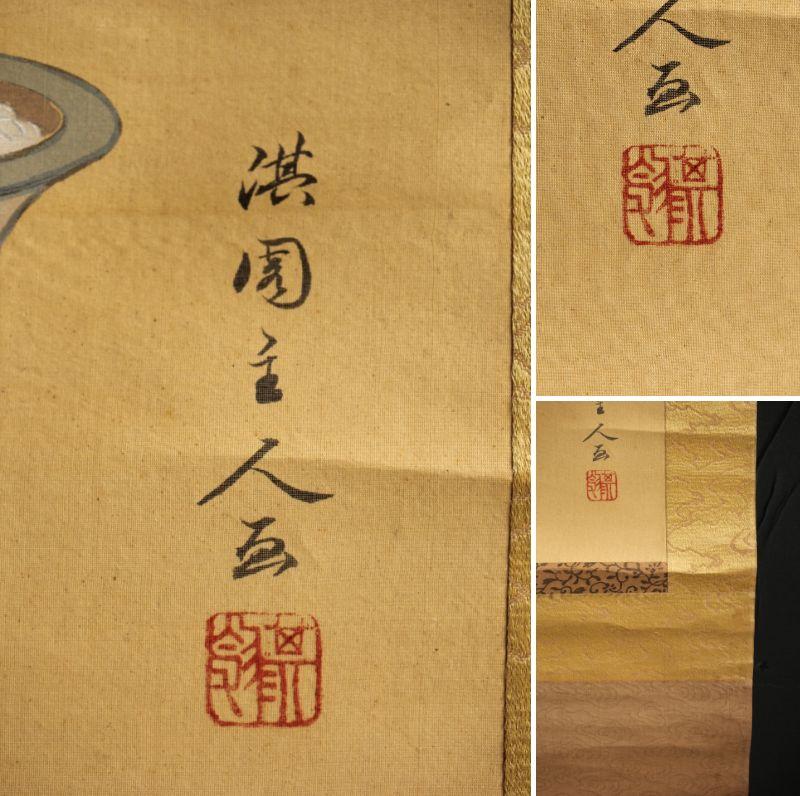 淇園主人画
人画
主人画